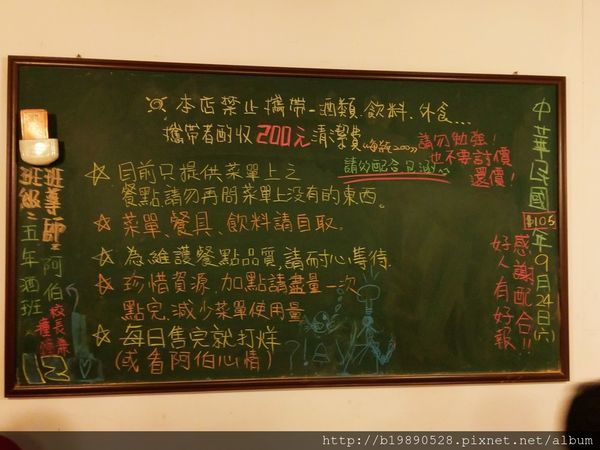 ※ 本店禁止攜帶-酒類、飲料、外食...
攜帶者酌收200元清潔費
請勿勉強!
也不要討價
還價!
☆目前只提供菜單上之
餐點請勿再問菜單上沒有的東西。
☆菜單、餐具、飲料請自取。
☆為維護餐點品質,請耐心等待
☆珍惜資源,加點請盡量一次
點完,減少菜單使用量
☆每日售完就打烊
(或看阿伯心情)
中華民國105年9月24日(六)
感謝配合!!
好人有好報
班導師:阿伯 校長兼
班級:五年酒班
12
http://b19890528.pixnet.net/album